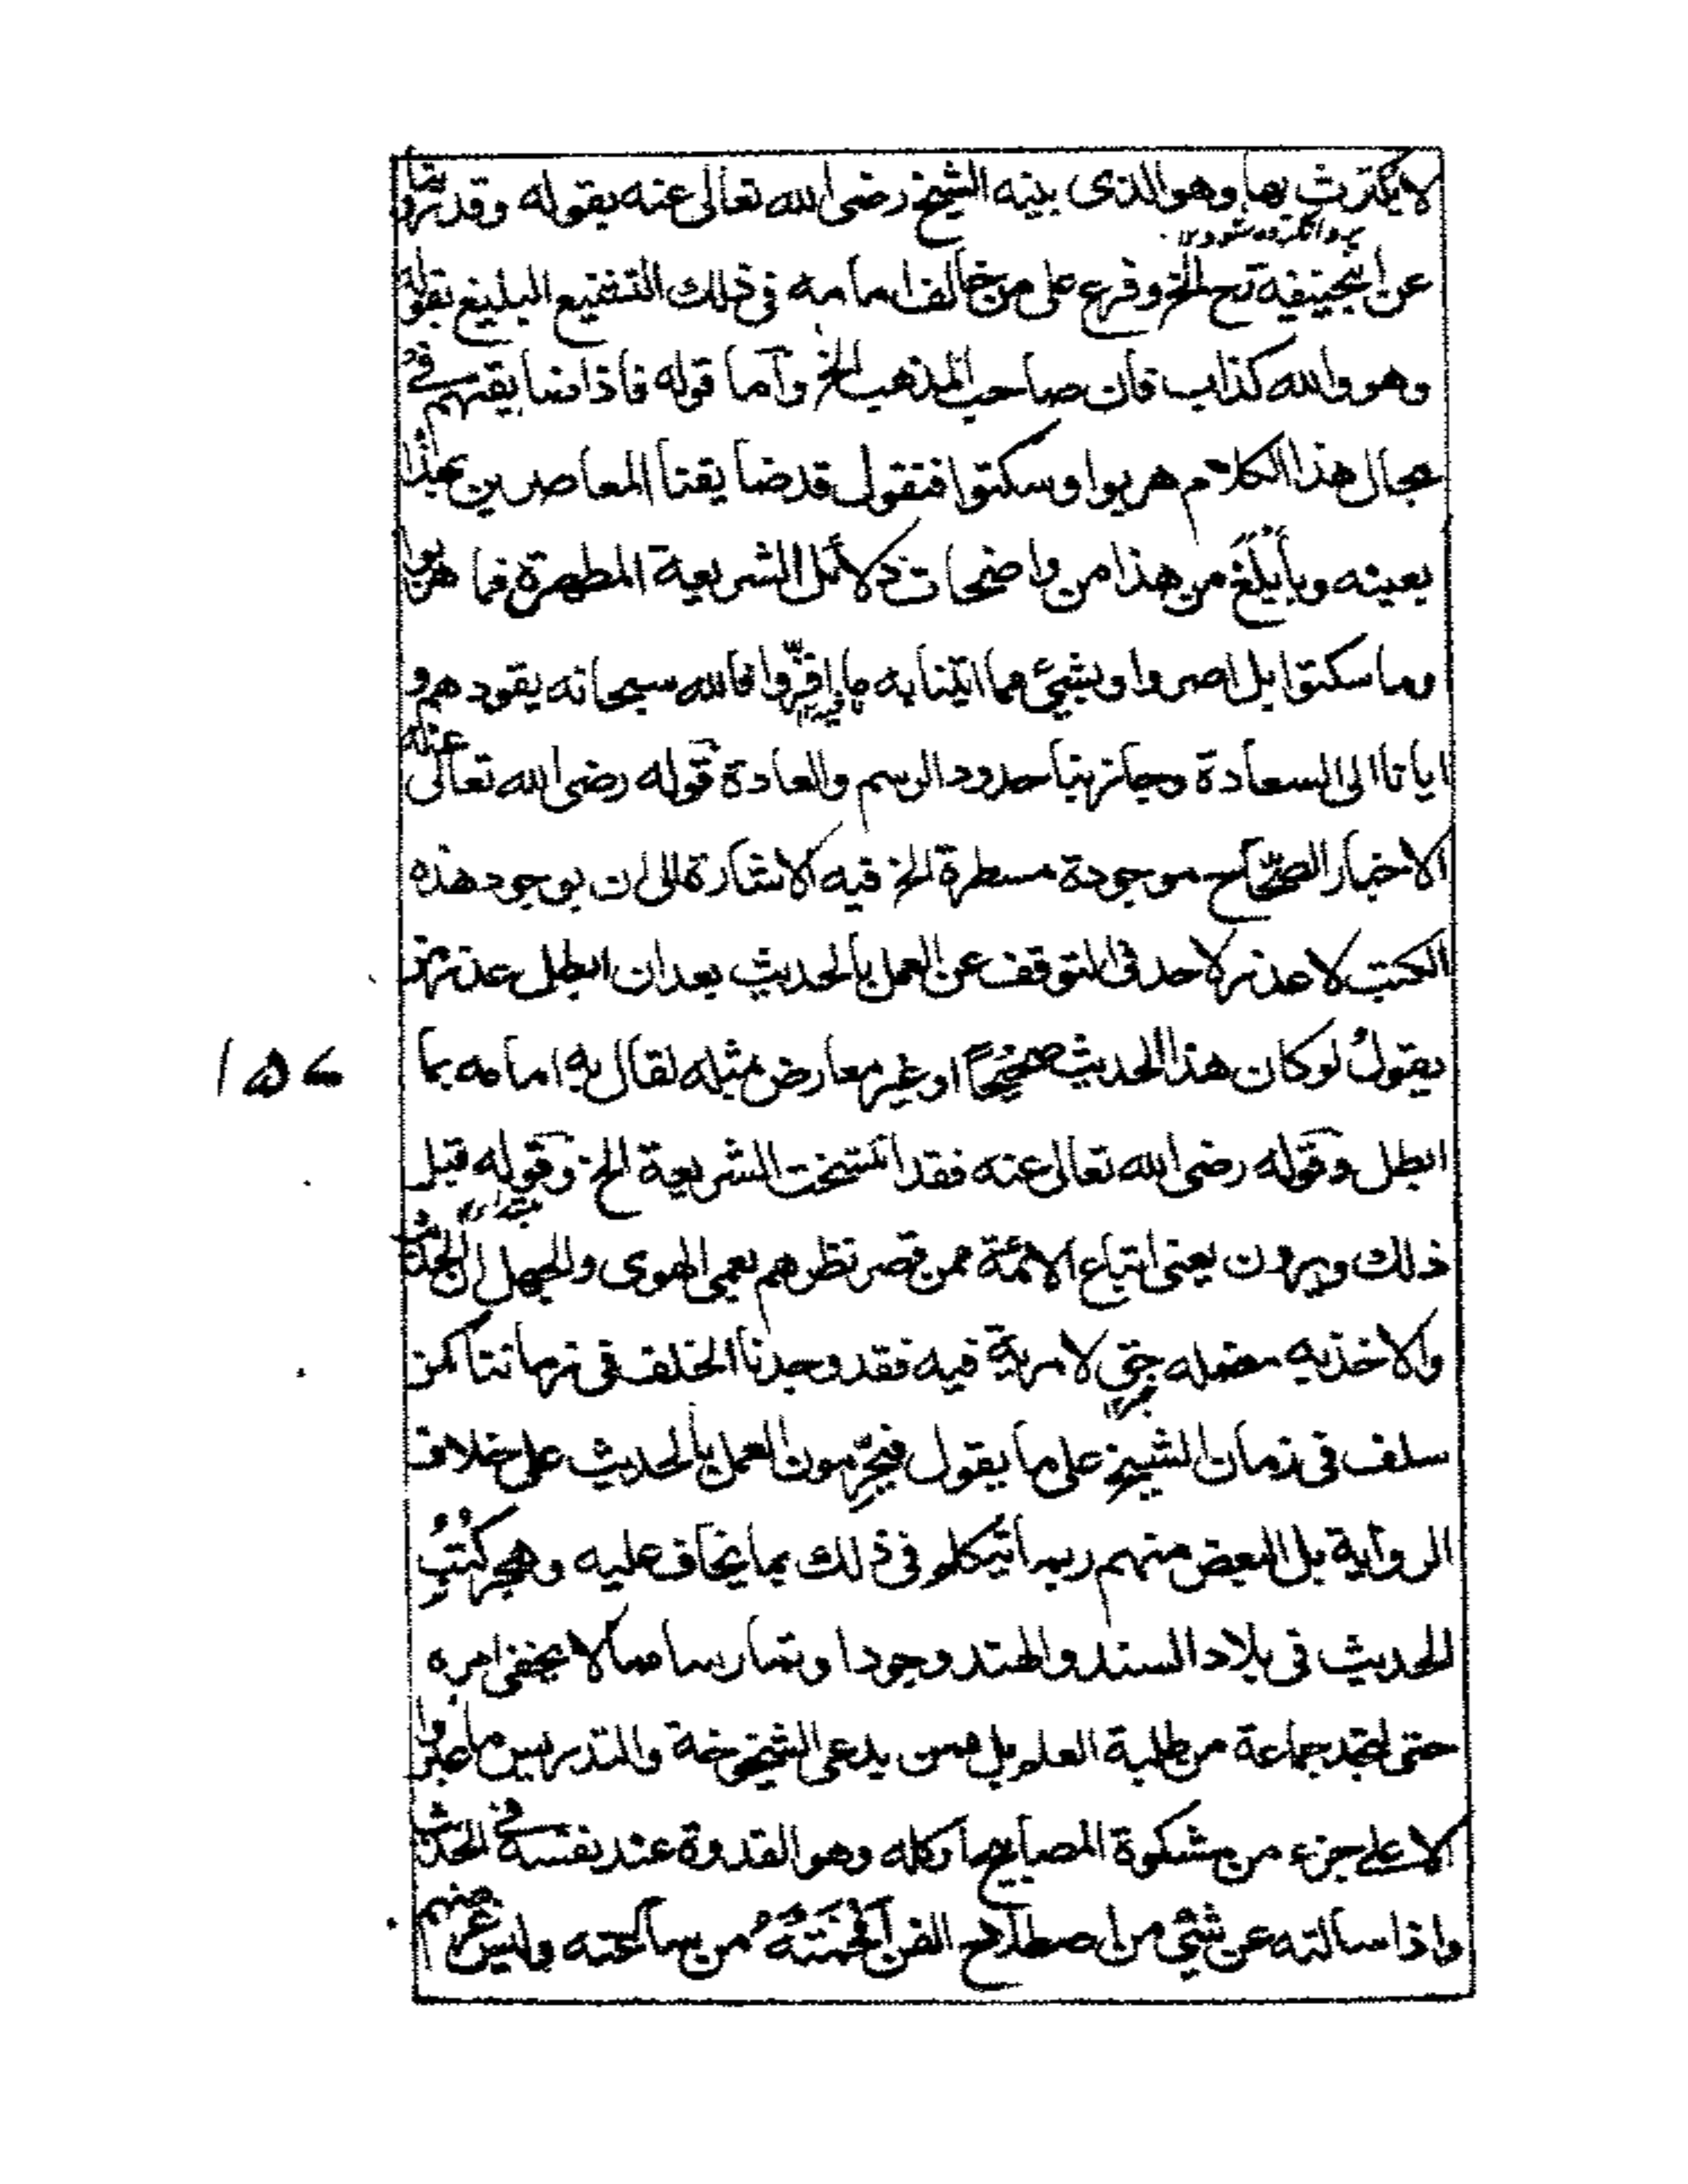 لا يكترث بها وهو الذى بينه الشيخ رضى الله تعالى عنه بقوله وقد روينا
عن ابيحنيفة رح الخ وفرع على من خالف امامه فى ذلك التفقيع البليغ بقوله
وهو والله كذاب فان صاحب المذهب الخ وآما قوله فاذا ضايقتهم فى
مجال هذا الكلام هربوا وسكتوا فنقول قد ضايقنا المعاصرين بهذا
بعينه وبأبلغ من هذا من واضحات دلائل الشريعة المطهرة فما هربوا
وما سكتوا بل اصروا وبشيئ مما اتينا به ما اقرّوا فالله سبحانه يقودهم و
ايانا الى السعادة وجاز بنا حدود الرسم والعادة قوله رضى الله تعالى عنه
الاخبار الصحاح موجودة مسطرة الخ فيه الاشارة الى ان بوجود هذه
الكتب لا عذر لاحد فى التوقف عن العمل بالحديث بعد ان ابطل عذر من
يقول لو كان هذا الحديث صحيحًا او غير معارض مثله لقال به امامه بما
١٥٧
ابطل وقوله رضى الله تعالى عنه فقد انتسخت الشريعة الخ وقوله قبل
ذلك ويرون يعنى اتباع الائمة ممن قصر نظرهم بعمى الهوى والجهل ان الحديث
والاخذ به مضله حتى لا مرية فيه فقد وجدنا الخلف فى زماننا كمن
سلف فى زمان الشيخ على ما يقول فيحرّمون العمل بالحديث على خلاف
الرواية بل البعض منهم ربما تيكلم فى ذلك بما يخاف عليه وهجر كُتُب
الحديث فى بلاد السند والهند وجودا وتمارسا مما لا يخفى امره
حتى لتجد جماعة من طلبة العلم بل ممن يدعى الشيخوخة والتدريس ما عبروا
الا على جزء من مشكوة المصابيح او كله وهو القدوة عند نفسه فى الحديث
واذا سالته عن شئ من اصطلاح الفن من ساعته وليس منهم